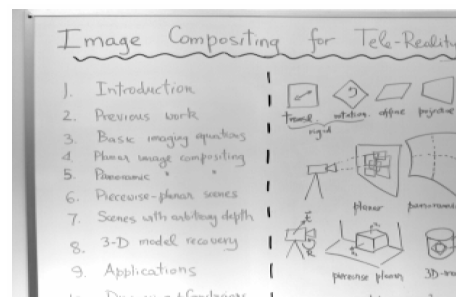 Image Compositing for Tele-Reality
1. Introduction
2. Previous work
3. Basic imaging equations
4. Planar image compositing
5. Panoramic " "
6. Piecewise-planar scenes
7. Scenes with arbitrary depth
8. 3-D model recovery
9. Applications
transl. rotation affine projective
rigid
planar panoramic
t
R
piecewise planar 3D-